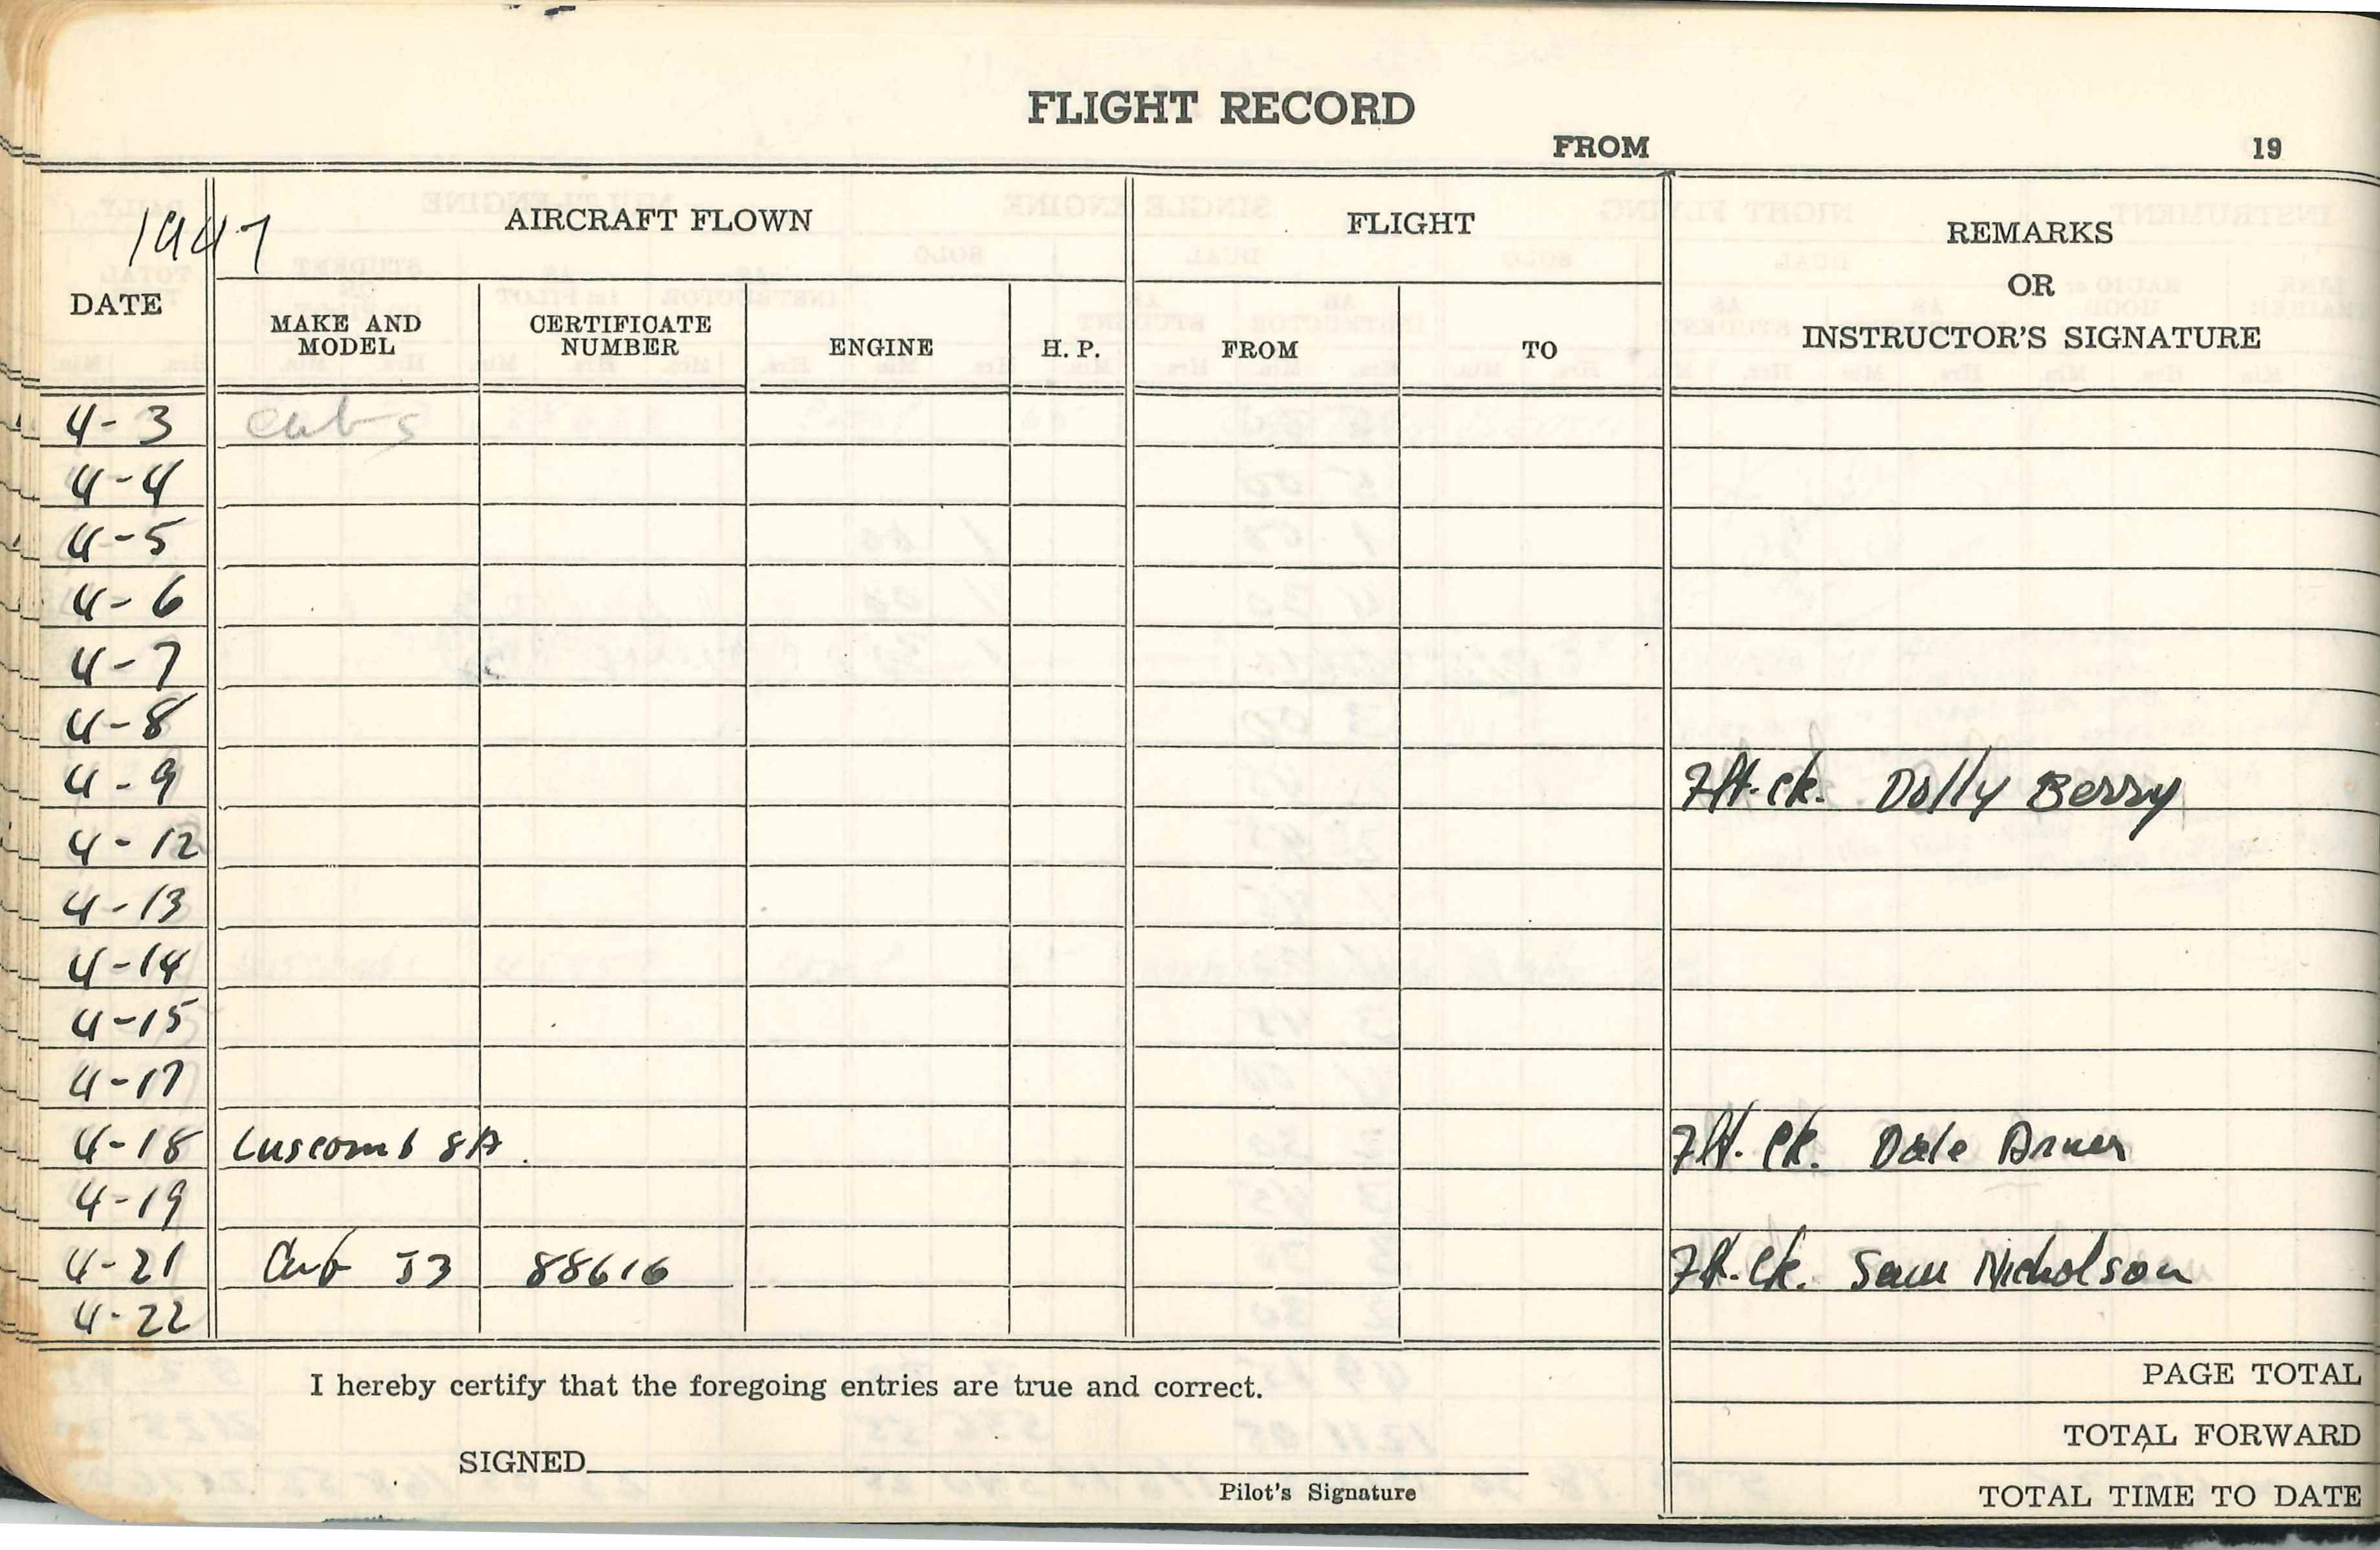 FLIGHT RECORD
FROM 19
1947
AIRCRAFT FLOWN FLIGHT REMARKS OR INSTRUCTOR'S SIGNATURE
DATE MAKE AND MODEL CERTIFICATE NUMBER ENGINE H. P. FROM TO
4-3 Cubs
4-4
4-5
4-6
4-7
4-8
4-9 Flt. ck. Dolly Berry
4-12
4-13
4-14
4-15
4-17
4-18 Luscomb 8A Flt. Ck. Dale
4-19
4-21 Cub J3 88616 Flt. Ck. Sam Nicholson
4-22
I hereby certify that the foregoing entries are true and correct.
PAGE TOTAL
TOTAL FORWARD
SIGNED
Pilot's Signature
TOTAL TIME TO DATE